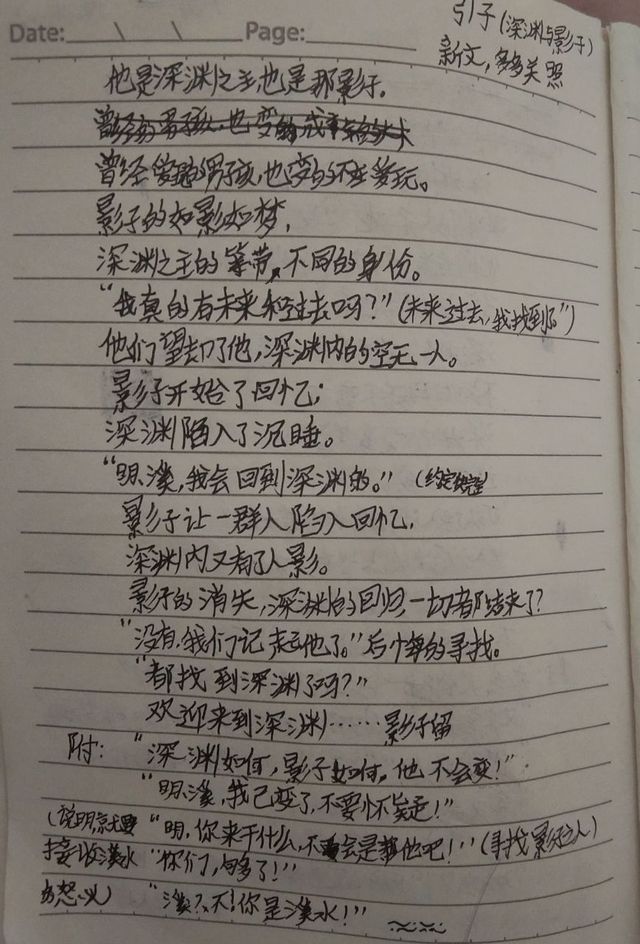 Date: \ \ Page:
引子(深渊与影子)
新文,多多关照
他是深渊之主,也是那影子。
曾经的男孩,也变的成
曾经爱 男孩,也变的不 爱玩。
影子的如影如梦,
深渊之主的 带,不同的身份。
“我真的有未来和过去吗?”(未来过去,我找到了”)
他们望却了他,深渊内的空无一人。
影子开始了回忆;
深渊陷入了沉睡。
“明溪,我会回到深渊的。”(约定 )
影子让一群人陷入回忆,
深渊内又有了人影。
影子的消失,深渊的回归,一切都结束了?
“没有,我们记起他了。”后 的寻找。
“都找到深渊了吗?”
欢迎来到深渊……影子留
附:“深渊如何,影子如何,他不会变!”
“明溪,我已变了,不要怀疑!”
(说明 “明,你来干什么,不会是 他吧!”(寻找影子之人)
接收 水 “你们,够了!”
“ ?不!你是 水!”